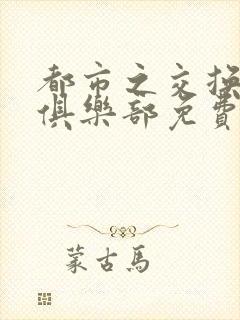 都市之交換
俱樂部免費
蒙古馬